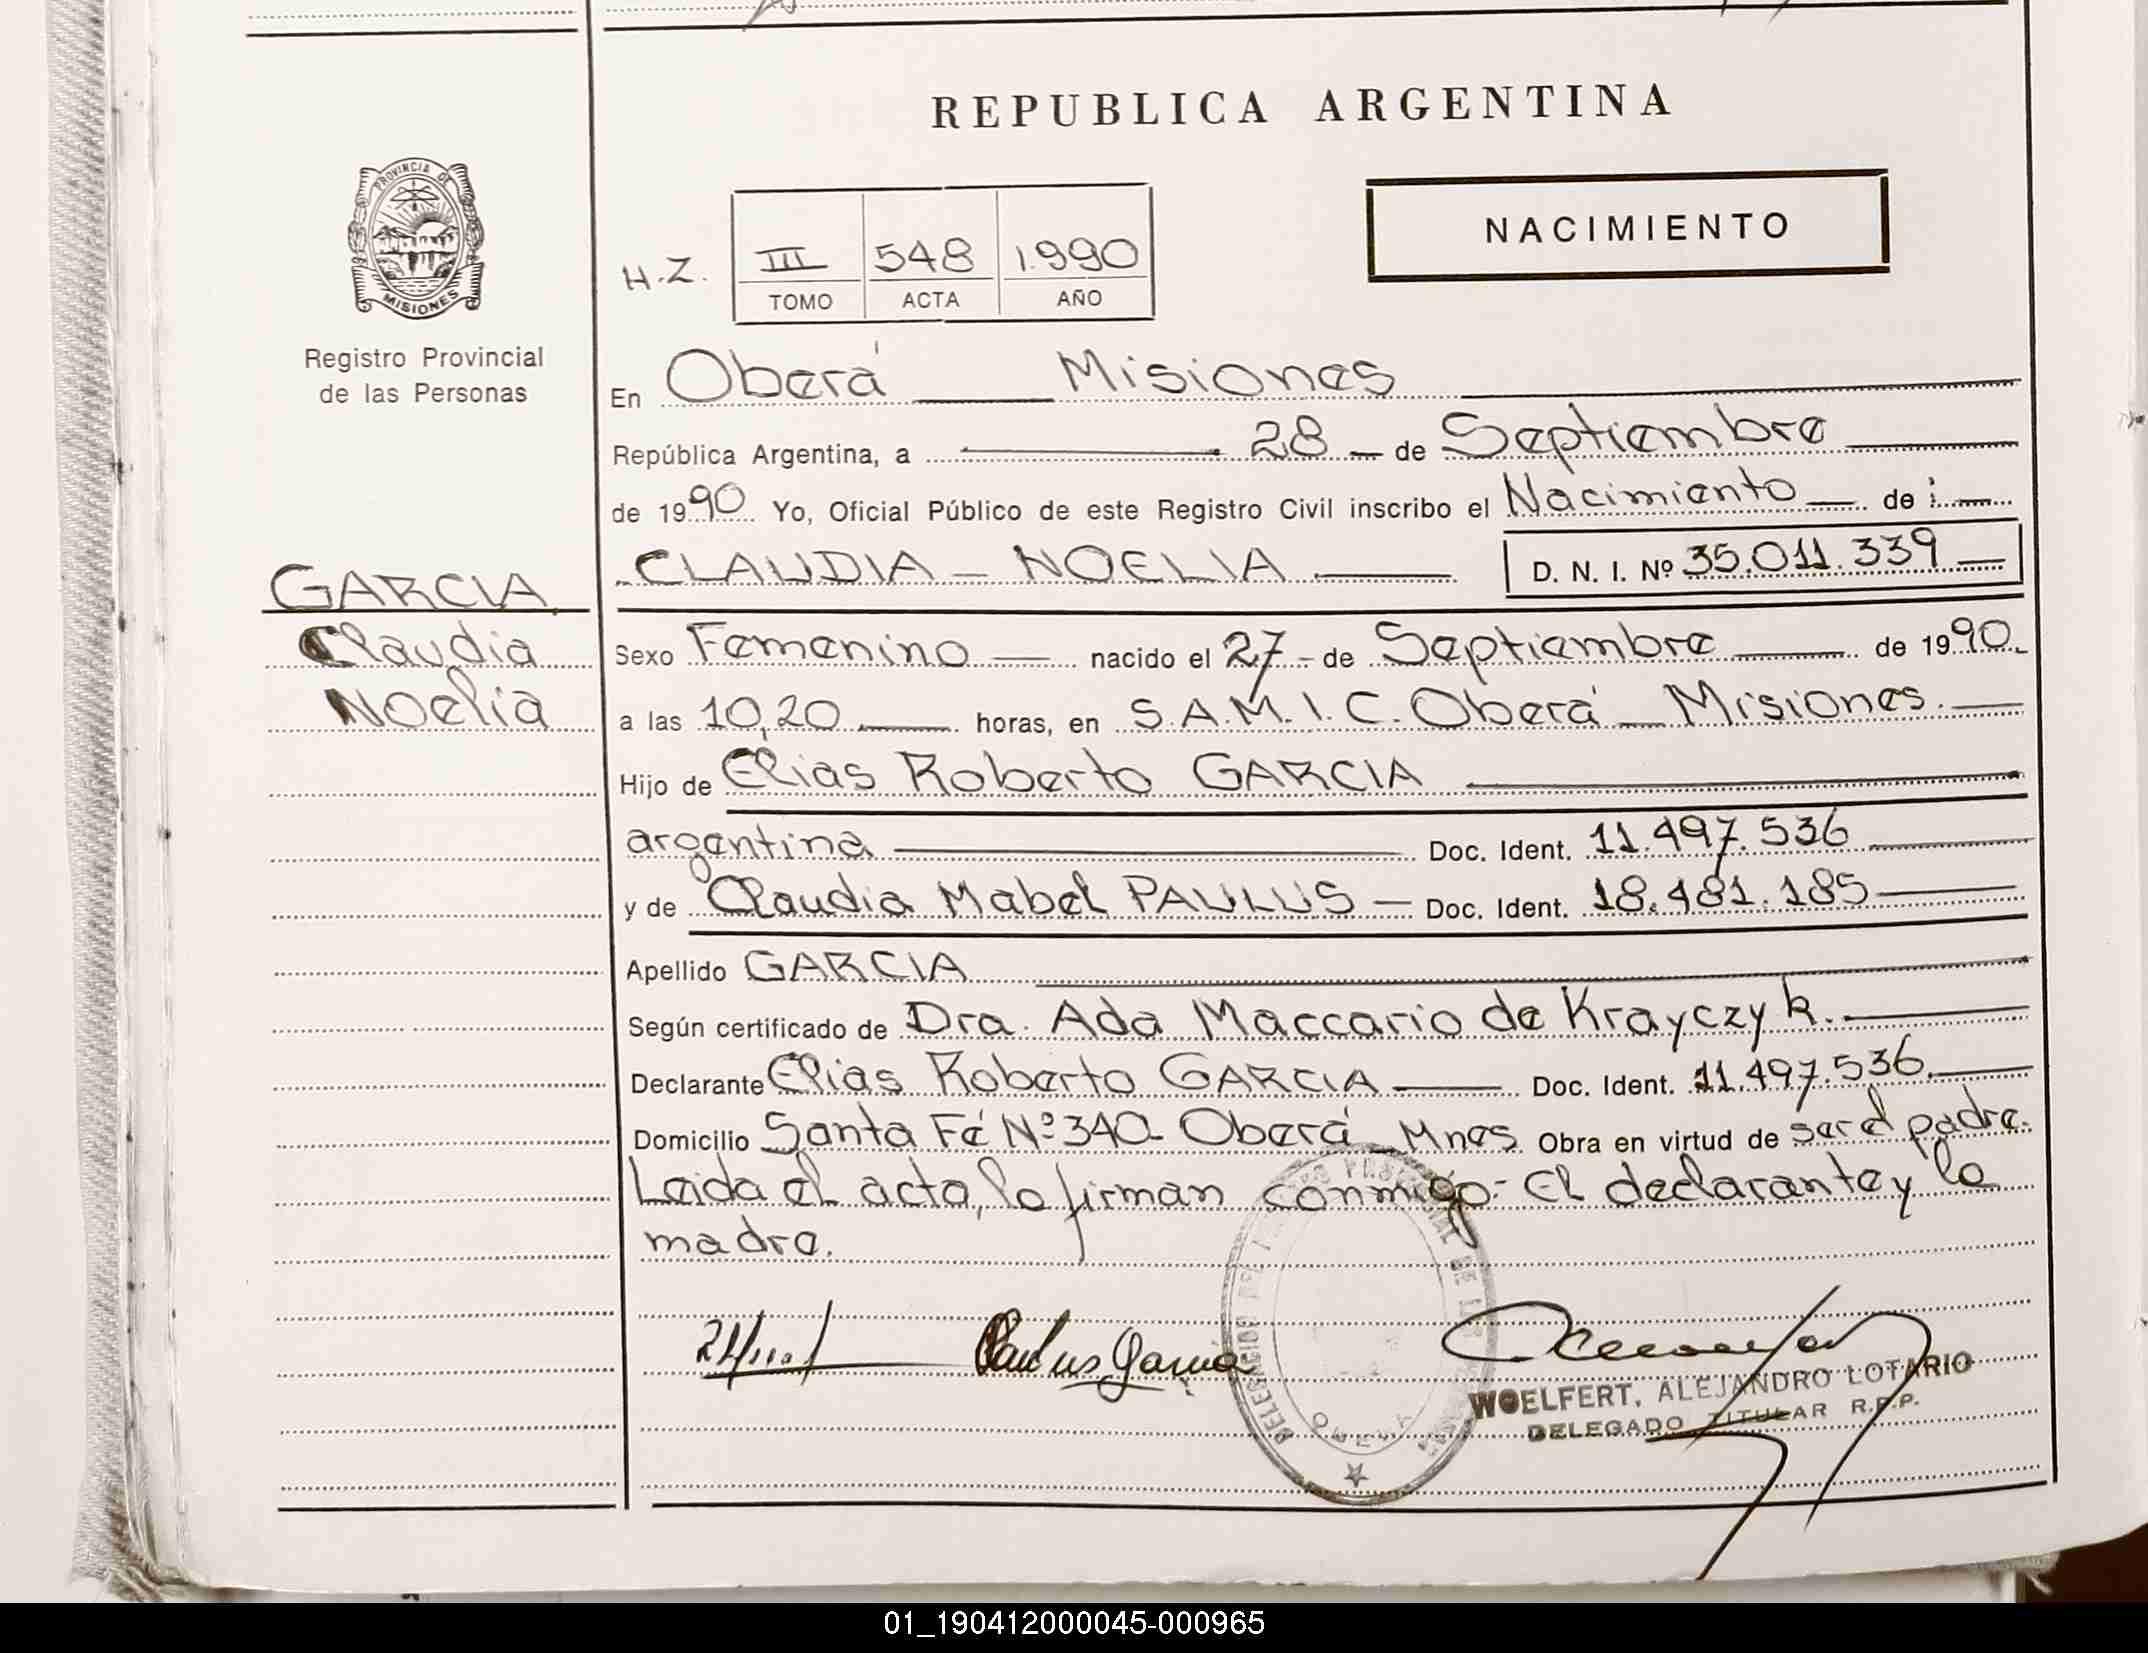 REPUBLICA ARGENTINA
PROVINCIA DE
MISIONES
Registro Provincial
de las Personas
NACIMIENTO
H.Z. III 548 1.990
TOMO ACTA AÑO
En Oberá Misiones
República Argentina, a 28 de Septiembre
de 1990 Yo, Oficial Público de este Registro Civil inscribo el Nacimiento de :
CLAUDIA - NOELIA D. N. I. Nº 35.011.339
GARCIA
Claudia
Noelia
Sexo Femenino nacido el 27 - de Septiembre de 1990.
a las 10,20 horas, en S.A.M.I.C. Oberá - Misiones.
Hijo de Elias Roberto GARCIA
argentina Doc. Ident. 11.497.536
y de Claudia Mabel PAULUS - Doc. Ident. 18.481.185
Apellido GARCIA
Según certificado de Dra. Ada Maccario de Krayczyk.
Declarante Elias Roberto GARCIA Doc. Ident. 11.497.536.
Domicilio Santa Fé Nº 340 - Oberá - Mnes Obra en virtud de ser el padre.
Leida el acta, la firman conmigo: El declarante y la
madre.
Paulus Garcia
WOELFERT, ALEJANDRO LOTARIO
DELEGADO TITULAR R.P.P.
01_190412000045-000965